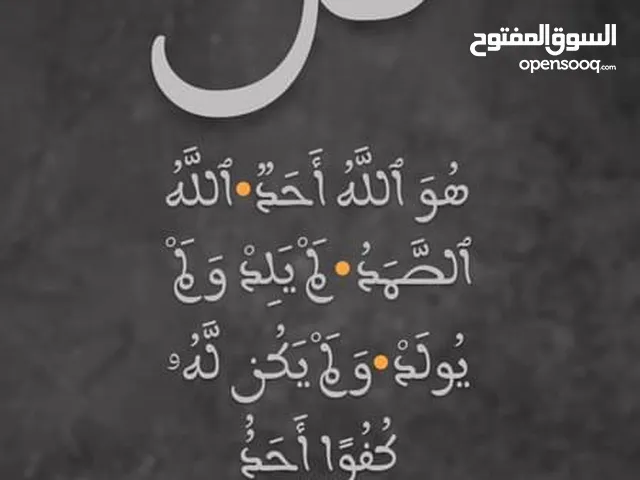 السوق المفتوح
opensooq.com
هُوَ ٱللَّهُ أَحَدٌ • ٱللَّهُ
ٱلصَّمَدُ • لَمْ يَلِدْ وَلَمْ
يُولَدْ • وَلَمْ يَكُن لَّهُۥ
كُفُوًا أَحَدُۢ